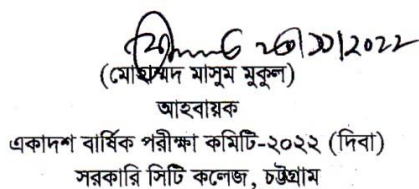 ২৩/১১/২০২২
(মোহাম্মদ মাসুম মুকুল)
আহবায়ক
একাদশ বার্ষিক পরীক্ষা কমিটি-২০২২ (দিবা)
সরকারি সিটি কলেজ, চট্টগ্রাম